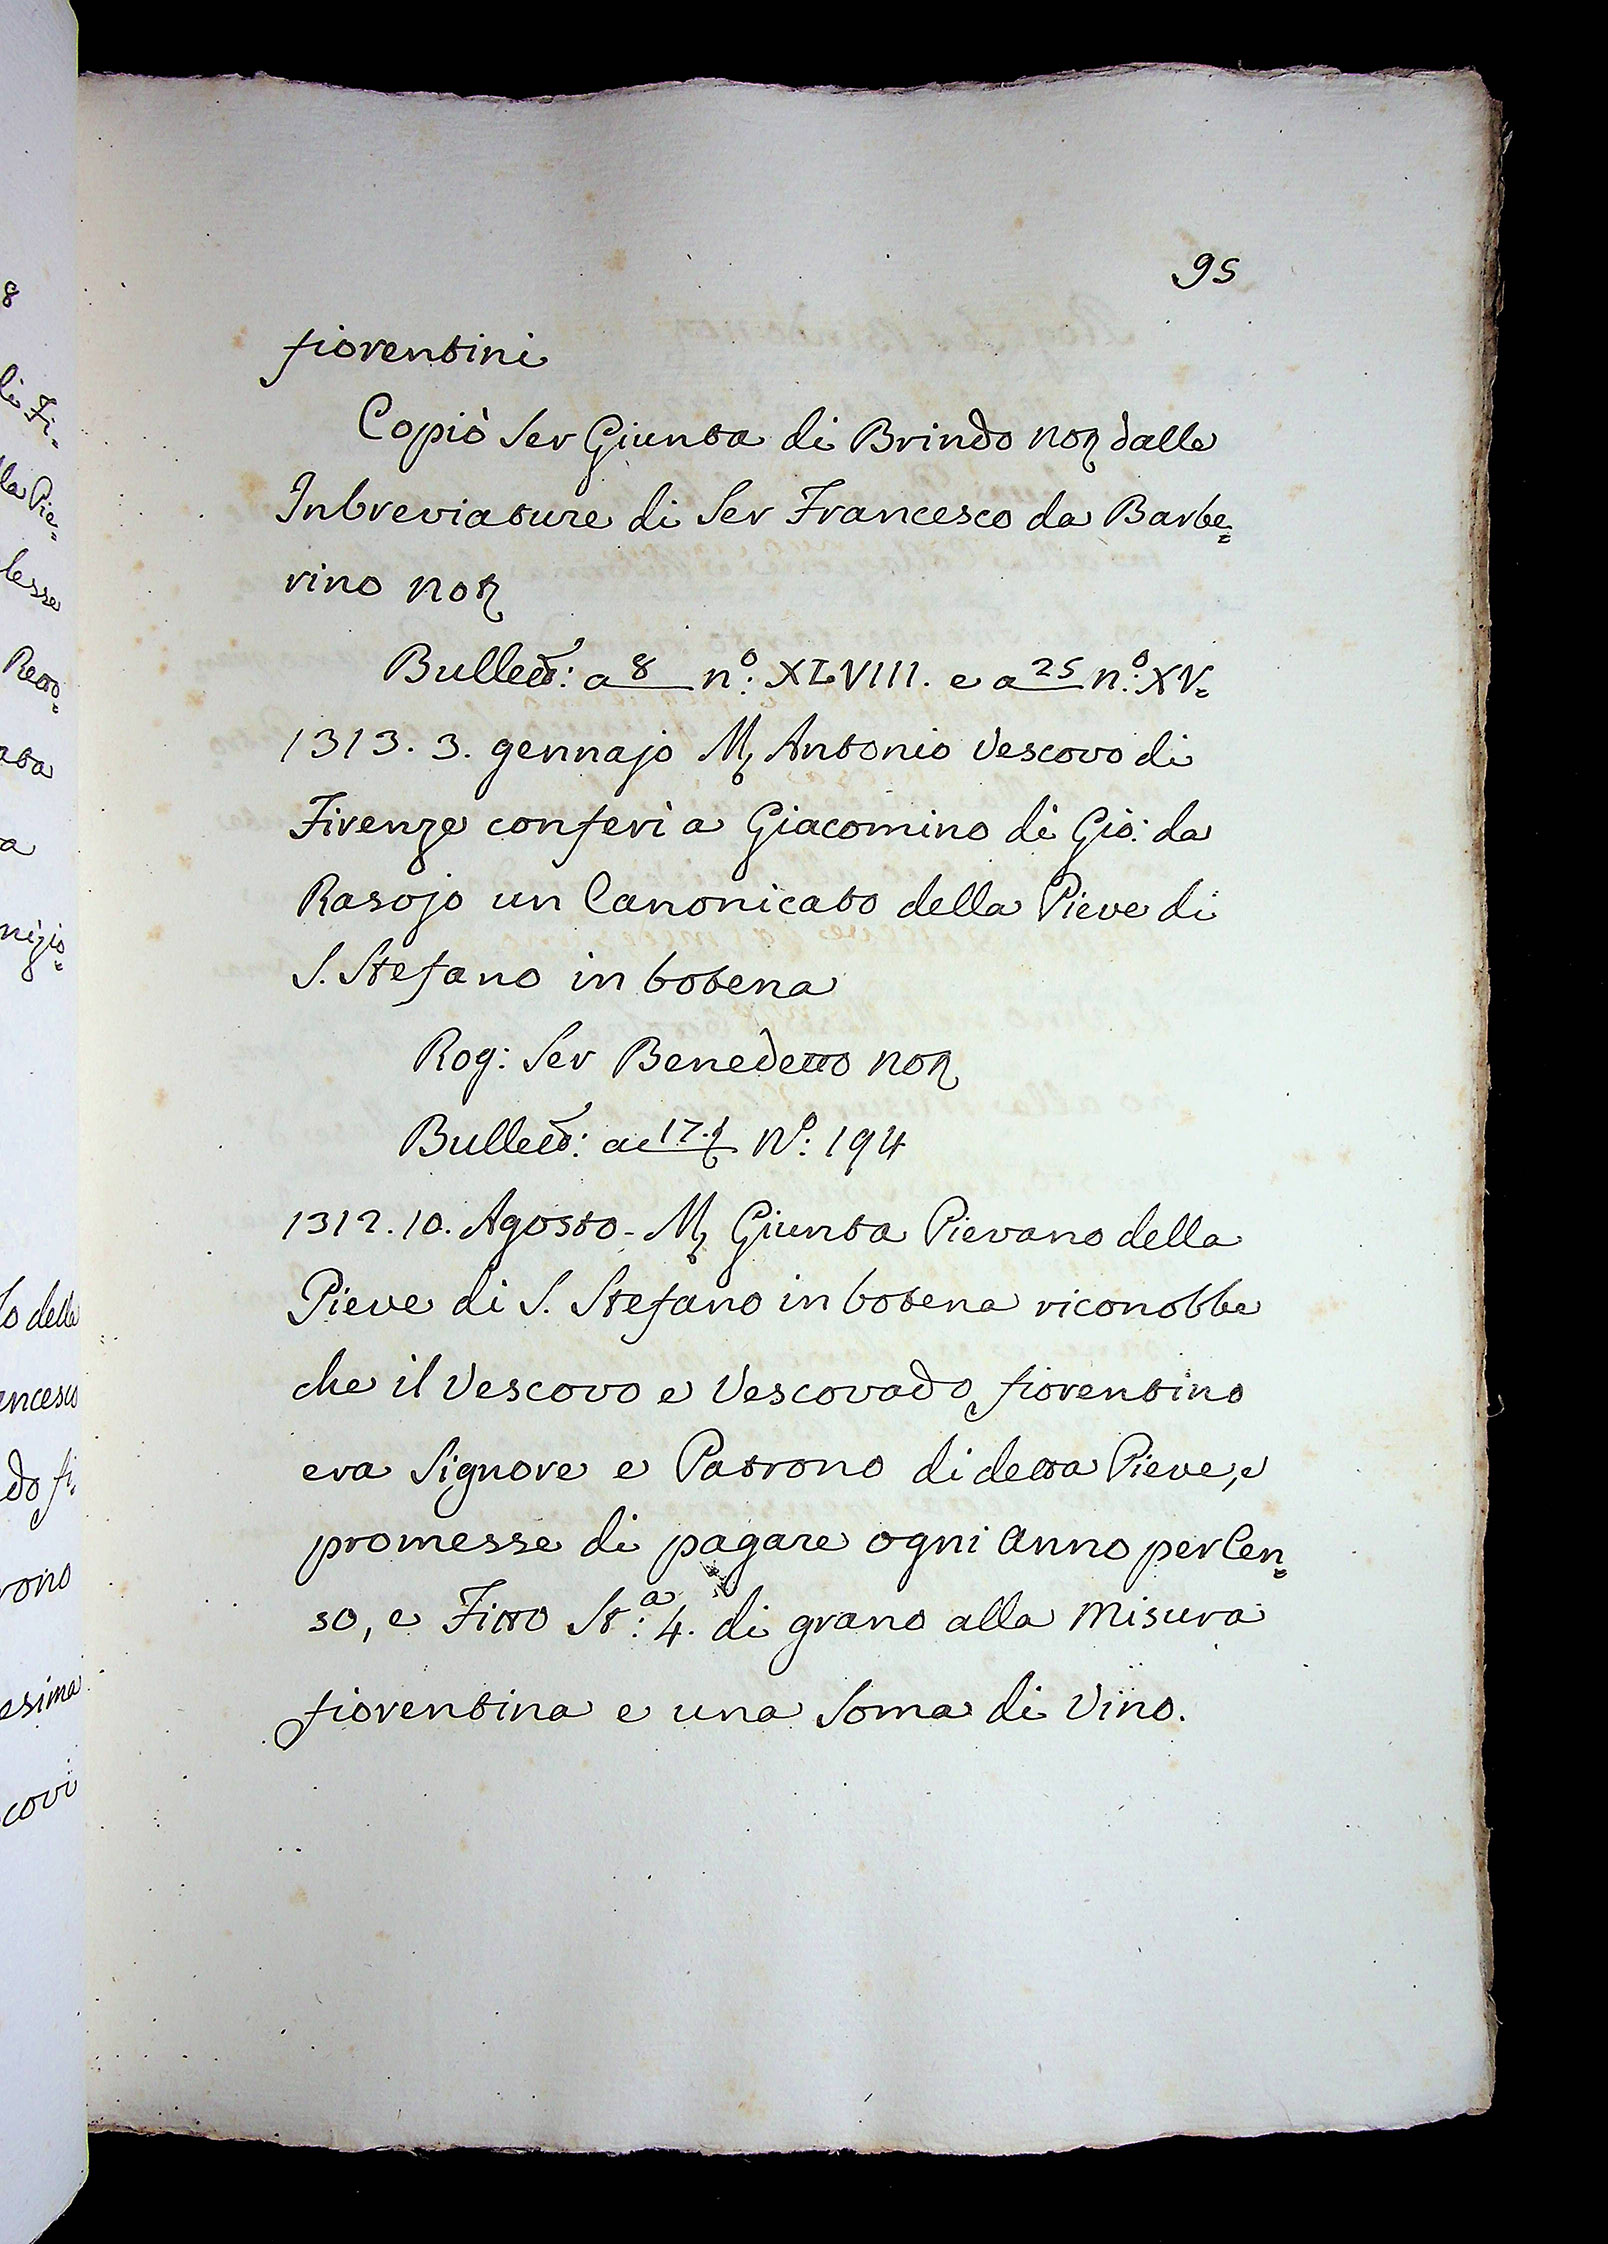 95
fiorentini
Copiò Ser Giunta di Brindo not dalle
Inbreviature di Ser Francesco da Barbe=
rino not
Bullett: a 8 n.º XLVIII. e a 25 n.º XV.
1313. 3. gennajo M Antonio Vescovo di
Firenze conferì a Giacomino di Gio: da
Rasojo un Canonicato della Pieve di
S. Stefano in botena
Rog: Ser Benedetto not
Bullett: ac 17. N.º 194
1312. 10. Agosto - M Giunta Pievano della
Pieve di S. Stefano in botena riconobbe
che il Vescovo e Vescovado fiorentino
era Signore e Patrono di detta Pieve, e
promesse di pagare ogni anno per Cen=
so, e Fitto St.ª 4. di grano alla Misura
fiorentina e una Soma di Vino.